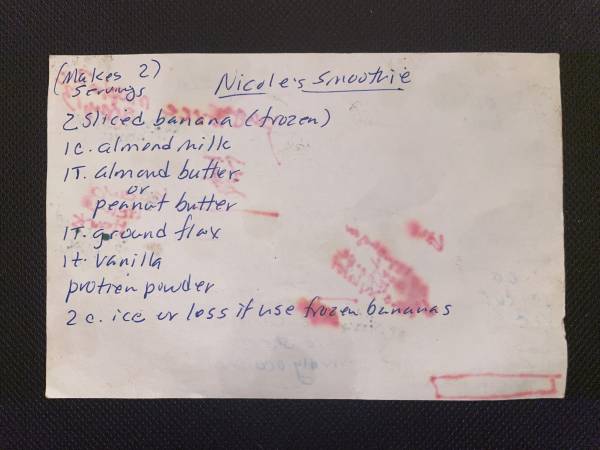 (Makes 2)
Servings
Nicole's Smoothie
2 sliced banana (frozen)
1 c. almond milk
1T. almond butter
or
peanut butter
1T. ground flax
1t. vanilla
protien powder
2 c. ice or loss if use frozen bananas